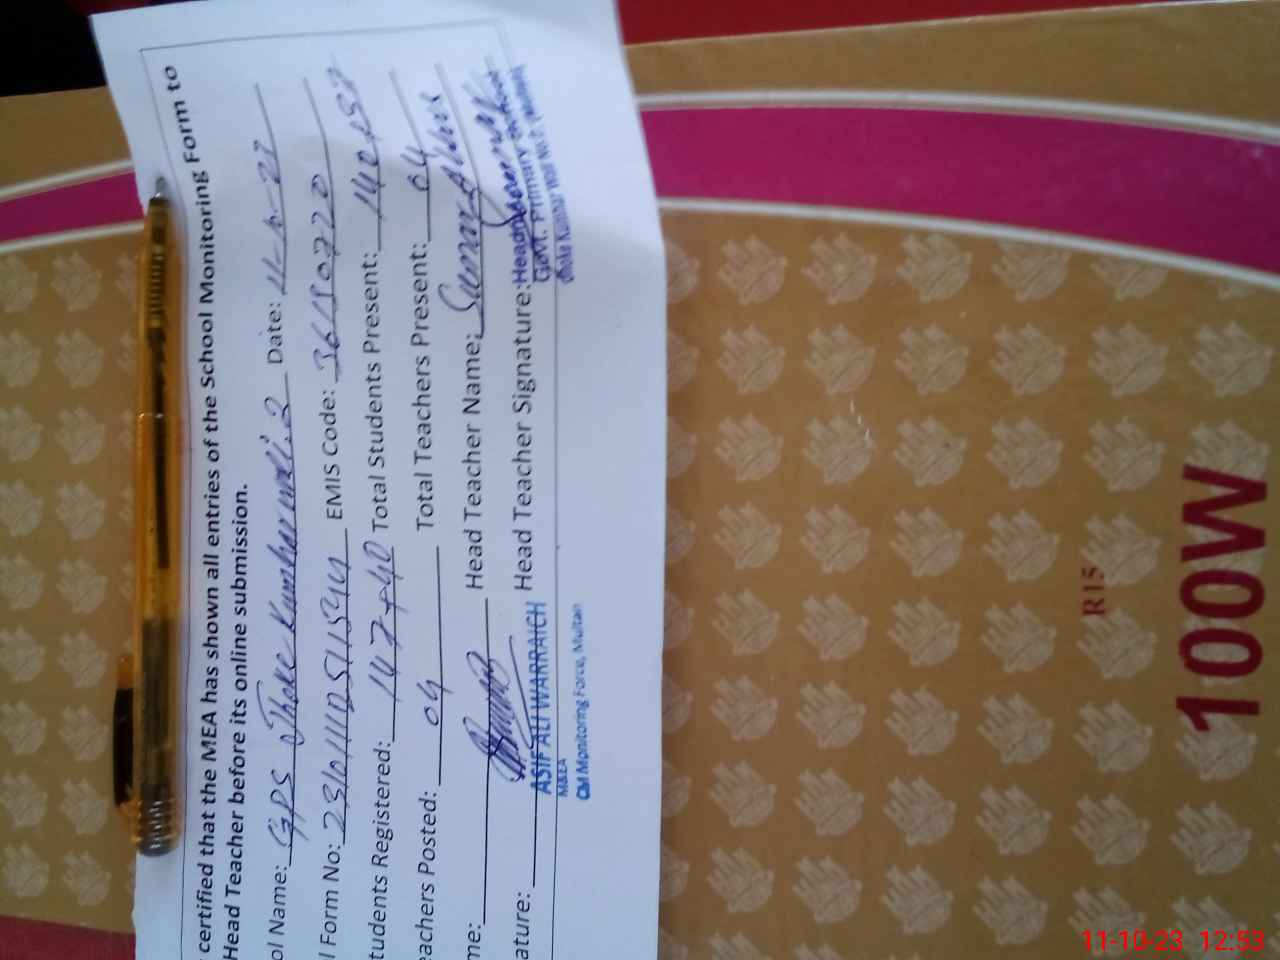 certified that the MEA has shown all entries of the School Monitoring Form to
Head Teacher before its online submission.
ol Name: GPS Jhoke Kumhar wali.2 Date: 11-10-23
l Form No: EMIS Code: 36150720
tudents Registered: 147+40 Total Students Present: 140+37
eachers Posted: 04 Total Teachers Present: 04
me: Head Teacher Name:
ature: Head Teacher Signature:
ASIF ALI WARRAICH
M&EA
CM Monitoring Force, Multan
Govt. Primary School
Jhoke Kumhar Wali No.2 (Multan)
R15
100W
11-10-23 12:53